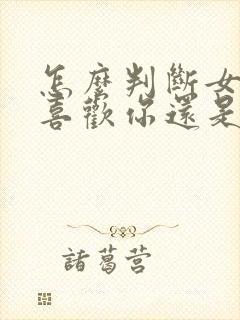 怎麼判斷女
喜歡你還是
諸葛营